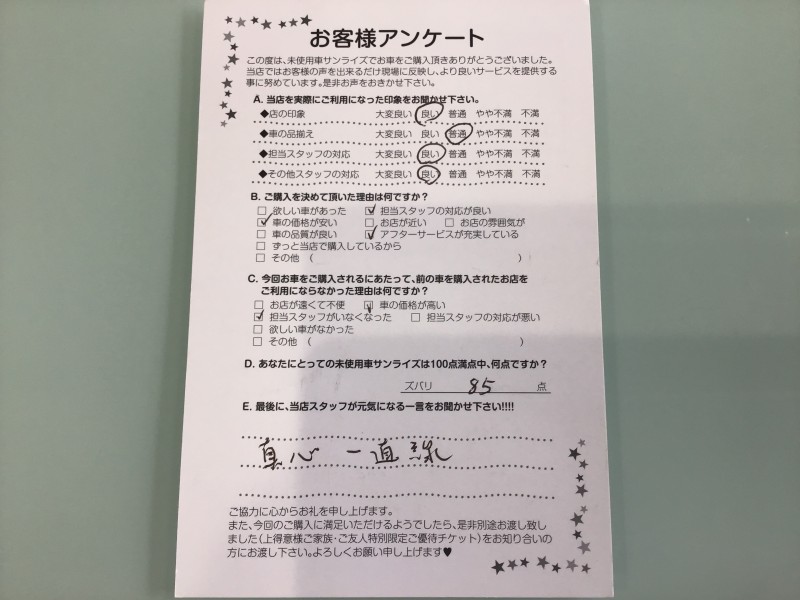 お客様アンケート
この度は、未使用車サンライズでお車をご購入頂きありがとうございました。
当店ではお客様の声を出来るだけ現場に反映し、より良いサービスを提供する
事に努めています。是非お声をおきかせ下さい。
A. 当店を実際にご利用になった印象をお聞かせ下さい。
◆店の印象 大変良い 良い 普通 やや不満 不満
◆車の品揃え 大変良い 良い 普通 やや不満 不満
◆担当スタッフの対応 大変良い 良い 普通 やや不満 不満
◆その他スタッフの対応 大変良い 良い 普通 やや不満 不満
B. ご購入を決めて頂いた理由は何ですか？
□ 欲しい車があった ☑ 担当スタッフの対応が良い
☑ 車の価格が安い □ お店が近い □ お店の雰囲気が
□ 車の品質が良い ☑ アフターサービスが充実している
□ ずっと当店で購入しているから
□ その他 ( )
C. 今回お車をご購入されるにあたって、前の車を購入されたお店を
ご利用にならなかった理由は何ですか？
□ お店が遠くて不便 ☑ 車の価格が高い
☑ 担当スタッフがいなくなった □ 担当スタッフの対応が悪い
□ 欲しい車がなかった
□ その他 ( )
D. あなたにとっての未使用車サンライズは100点満点中、何点ですか？
ズバリ 85 点
E. 最後に、当店スタッフが元気になる一言をお聞かせ下さい!!!!
真心 一直線
ご協力に心からお礼を申し上げます。
また、今回のご購入に満足いただけるようでしたら、是非別途お渡し致し
ました(上得意様ご家族・ご友人特別限定ご優待チケット)をお知り合いの
方にお渡し下さい。よろしくお願い申し上げます♥